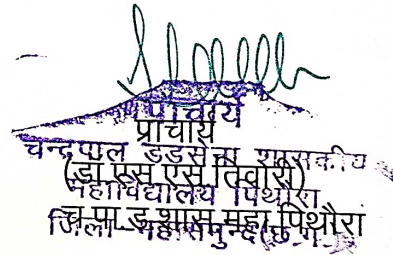 प्राचार्य
प्राचार्य
चन्द्रपाल डडसेना शासकीय
(डॉ एस एस तिवारी)
महाविद्यालय पिथौरा
च.पा.ड.शास.महा.पिथौरा
जिला-महासमुन्द(छ.ग.)